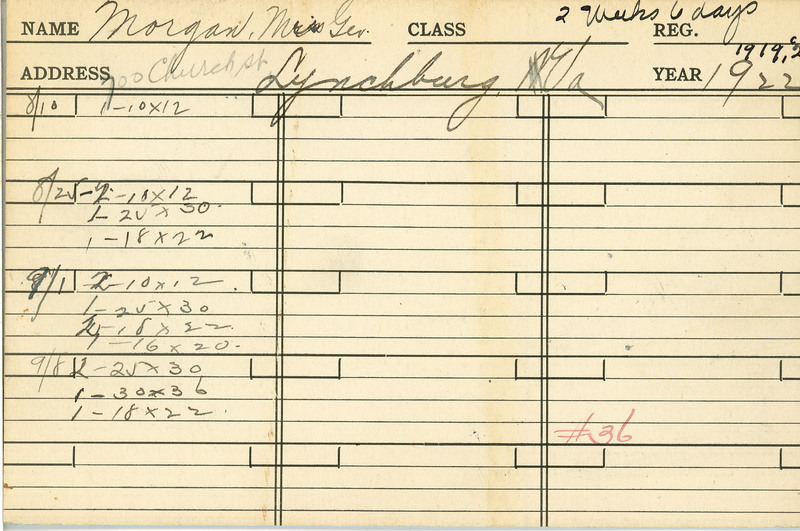 2 Weeks 6 days
NAME Morgan, Mrs Geo. CLASS REG.
1919,
ADDRESS 700 Church St Lynchburg, Va YEAR 1922
8/10 1-10x12
8/25 -10x12
1-25x30.
1-18x22
9/1 -10x12.
1-25x30
-18x22.
1-16x20.
9/8 2-25x30
1-30x36
1-18x22.
#36